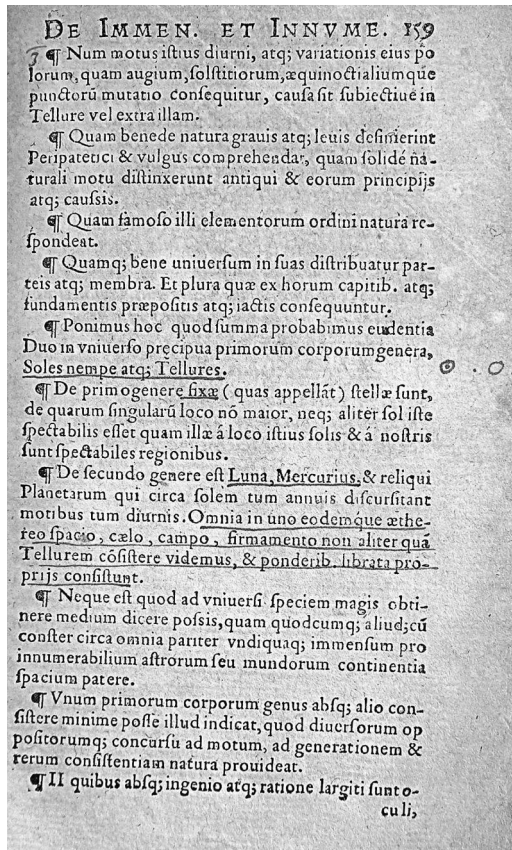 DE IMMEN. ET INNVME. 159
3 ¶ Num motus istius diurni, atq; variationis eius po
lorum, quam augium, solstitiorum, æquinoctialiumque
punctorũ mutatio consequitur, causa sit subiectiuè in
Tellure vel extra illam.
¶ Quam benede natura grauis atq; leuis definierint
Peripatetici & vulgus comprehendar, quam solidé na-
turali motu distinxerunt antiqui & eorum principijs
atq; caussis.
¶ Quam famoso illi elementorum ordini natura re-
spondeat.
¶ Quamq; bene uniuersum in suas distribuatur par-
teis atq; membra. Et plura quæ ex horum capitib. atq;
fundamentis præpositis atq; iactis consequuntur.
¶ Ponimus hoc quod summa probabimus euidentia
Duo in vniuerso pręcipua primorum corporum genera,
Soles nempe atq; Tellures.
¶ De primo genere fixæ (quas appellãt) stellæ sunt,
de quarum singularũ loco nõ maior, neq; aliter sol iste
spectabilis esset quam illæ á loco istius solis & á nostris
sunt spectabiles regionibus.
¶ De secundo genere est Luna, Mercurius, & reliqui
Planetarum qui circa solem tum annuis discursitant
motibus tum diurnis. Omnia in uno eodemque æthe-
reo spacio, cælo, campo, firmamento non aliter quã
Tellurem cõsistere videmus, & ponderib. librata pro-
prijs consistunt.
¶ Neque est quod ad vniuersi speciem magis obti-
nere medium dicere possis, quam quodcumq; aliud; cũ
conster circa omnia pariter vndiquaq; immensum pro
innumerabilium astrorum seu mundorum continentia
spacium patere.
¶ Vnum primorum corporum genus absq; alio con-
sistere minime posse illud indicat, quod diuersorum op
positorumq; concursu ad motum, ad generationem &
rerum consistentiam natura prouideat.
¶ II quibus absq; ingenio atq; ratione largiti sunt o-
culi,